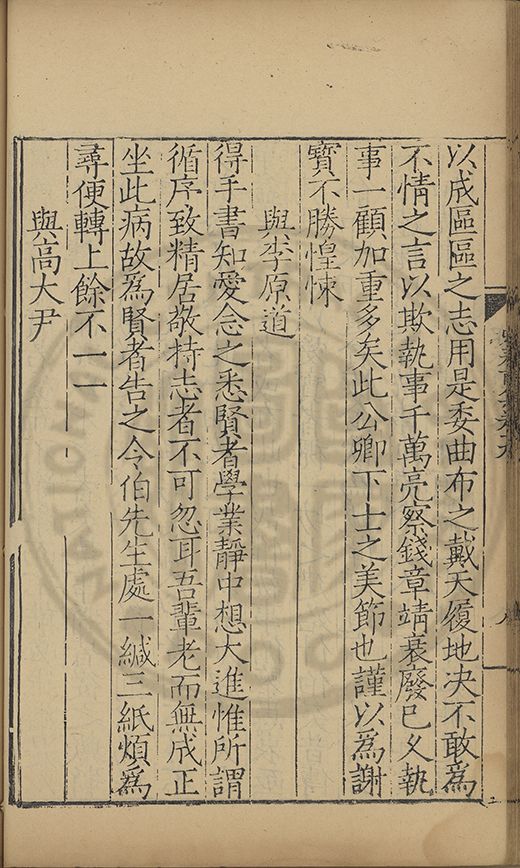 以成區區之志用是委曲布之戴天履地决不敢爲
不情之言以欺執事千萬亮察錢章靖衰廢已乆執
事一顧加重多矣此公卿下士之美節也謹以爲謝
寳不勝惶悚
與李原道
得手書知愛念之悉賢者學業靜中想大進惟所謂
循序致精居敬持志者不可忽耳吾輩老而無成正
坐此病故爲賢者告之令伯先生處一緘三紙煩爲
尋便轉上餘不一一
與高大尹